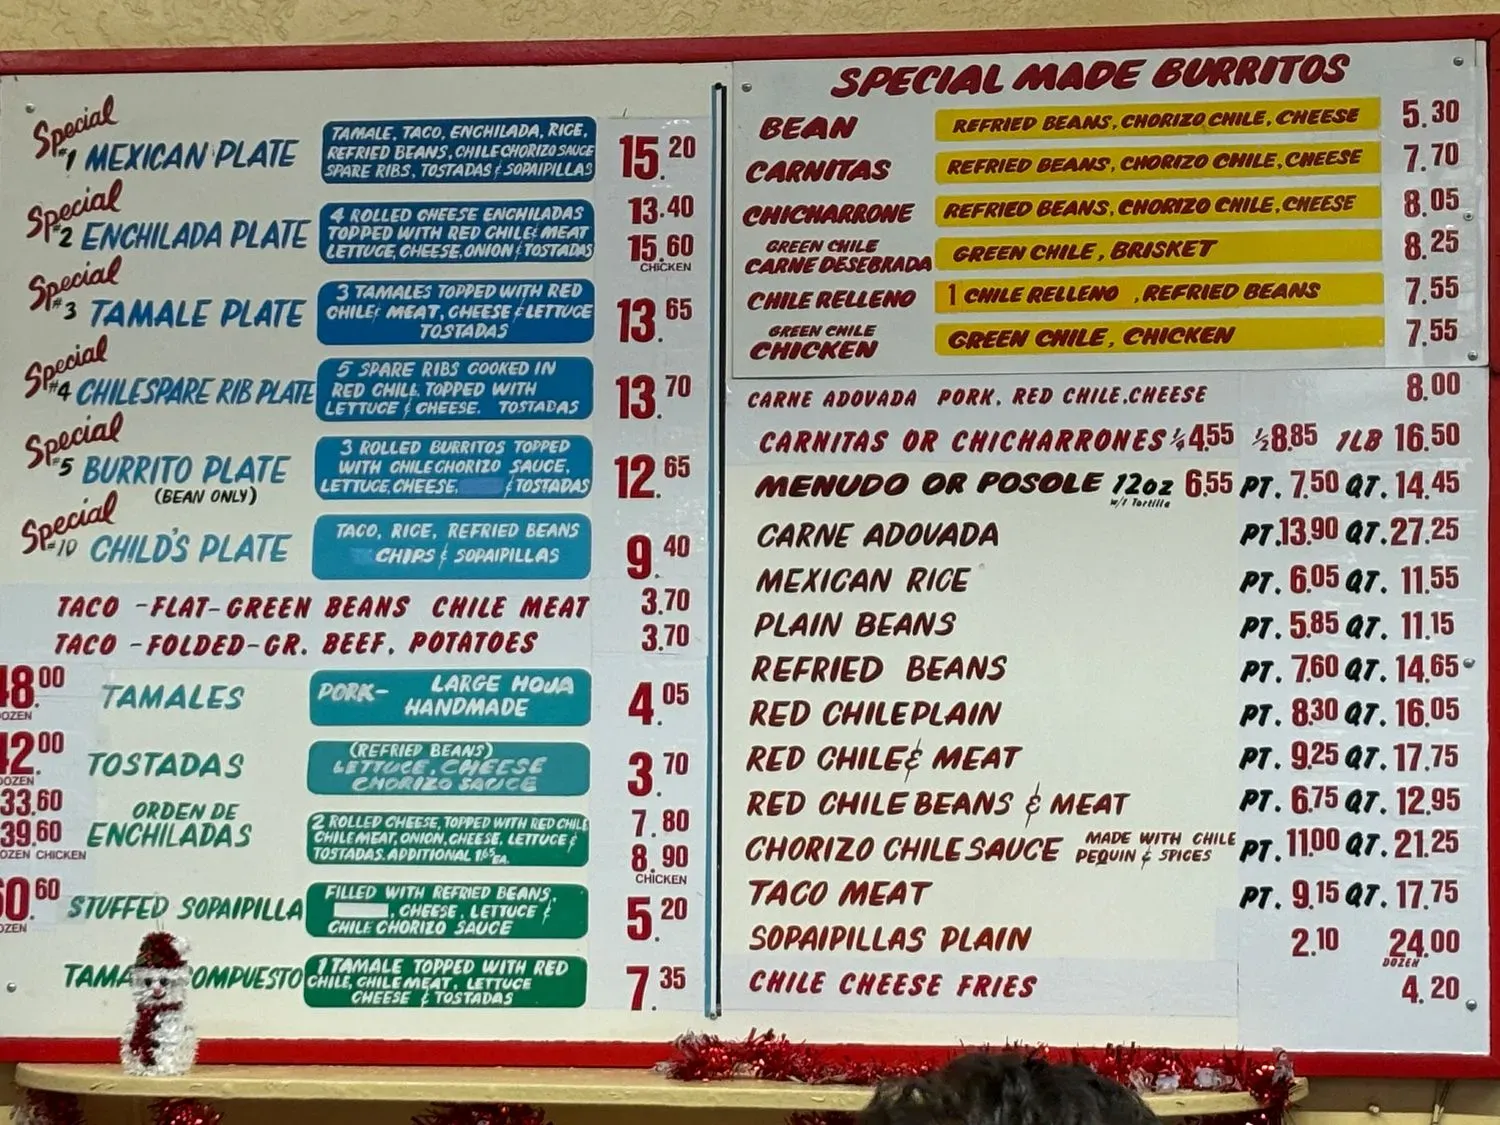 Special #1 MEXICAN PLATE
TAMALE, TACO, ENCHILADA, RICE,
REFRIED BEANS, CHILE CHORIZO SAUCE
SPARE RIBS, TOSTADAS & SOPAIPILLAS
15.20
Special #2 ENCHILADA PLATE
4 ROLLED CHEESE ENCHILADAS
TOPPED WITH RED CHILE & MEAT
LETTUCE, CHEESE, ONION & TOSTADAS
13.40
15.60
CHICKEN
Special #3 TAMALE PLATE
3 TAMALES TOPPED WITH RED
CHILE & MEAT, CHEESE & LETTUCE
TOSTADAS
13.65
Special #4 CHILE SPARE RIB PLATE
5 SPARE RIBS COOKED IN
RED CHILE TOPPED WITH
LETTUCE & CHEESE. TOSTADAS
13.70
Special #5 BURRITO PLATE
(BEAN ONLY)
3 ROLLED BURRITOS TOPPED
WITH CHILE CHORIZO SAUCE,
LETTUCE, CHEESE, & TOSTADAS
12.65
Special #10 CHILD'S PLATE
TACO, RICE, REFRIED BEANS
CHIPS & SOPAIPILLAS
9.40
TACO -FLAT- GREEN BEANS CHILE MEAT 3.70
TACO -FOLDED- GR. BEEF, POTATOES 3.70
48.00
OZEN
TAMALES
PORK- LARGE HOJA
HANDMADE
4.05
42.00
DOZEN
TOSTADAS
(REFRIED BEANS)
LETTUCE, CHEESE
CHORIZO SAUCE
3.70
33.60
39.60
OZEN CHICKEN
ORDEN DE
ENCHILADAS
2 ROLLED CHEESE, TOPPED WITH RED CHILE
CHILE MEAT, ONION, CHEESE, LETTUCE &
TOSTADAS. ADDITIONAL 1.65 EA.
7.80
8.90
CHICKEN
60.60
OZEN
STUFFED SOPAIPILLA
FILLED WITH REFRIED BEANS,
, CHEESE, LETTUCE &
CHILE CHORIZO SAUCE
5.20
TAMA OMPUESTO
1 TAMALE TOPPED WITH RED
CHILE, CHILE MEAT, LETTUCE
CHEESE & TOSTADAS
7.35
SPECIAL MADE BURRITOS
BEAN REFRIED BEANS, CHORIZO CHILE, CHEESE 5.30
CARNITAS REFRIED BEANS, CHORIZO CHILE, CHEESE 7.70
CHICHARRONE REFRIED BEANS, CHORIZO CHILE, CHEESE 8.05
GREEN CHILE
CARNE DESEBRADA GREEN CHILE, BRISKET 8.25
CHILE RELLENO 1 CHILE RELLENO , REFRIED BEANS 7.55
GREEN CHILE
CHICKEN GREEN CHILE, CHICKEN 7.55
CARNE ADOVADA PORK, RED CHILE, CHEESE 8.00
CARNITAS OR CHICHARRONES 1/4 4.55 1/2 8.85 1LB 16.50
MENUDO OR POSOLE 12oz 6.55 PT. 7.50 QT. 14.45
w/1 Tortilla
CARNE ADOVADA PT. 13.90 QT. 27.25
MEXICAN RICE PT. 6.05 QT. 11.55
PLAIN BEANS PT. 5.85 QT. 11.15
REFRIED BEANS PT. 7.60 QT. 14.65
RED CHILE PLAIN PT. 8.30 QT. 16.05
RED CHILE & MEAT PT. 9.25 QT. 17.75
RED CHILE BEANS & MEAT PT. 6.75 QT. 12.95
CHORIZO CHILE SAUCE MADE WITH CHILE PEQUIN & SPICES PT. 11.00 QT. 21.25
TACO MEAT PT. 9.15 QT. 17.75
SOPAIPILLAS PLAIN 2.10 24.00
DOZEN
CHILE CHEESE FRIES 4.20